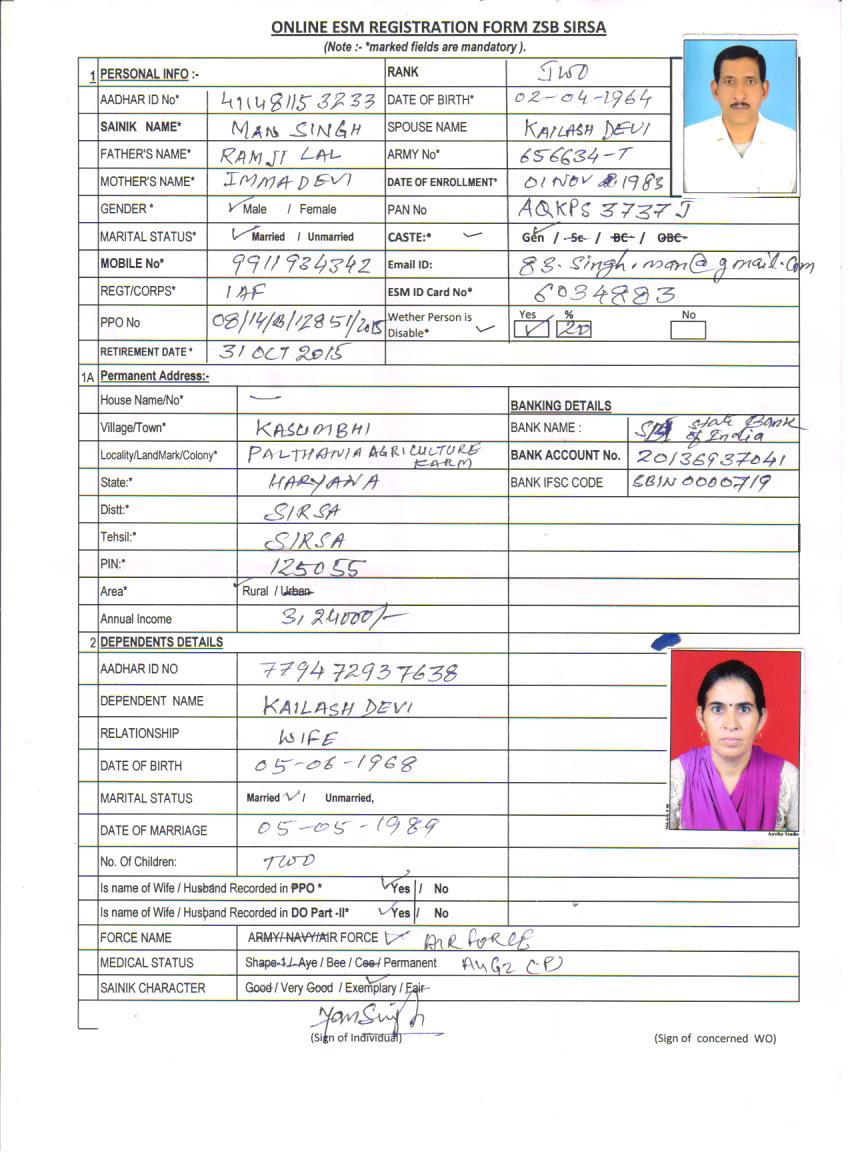 ONLINE ESM REGISTRATION FORM ZSB SIRSA
(Note :- *marked fields are mandatory ).
1 PERSONAL INFO :- RANK JWO
AADHAR ID No* 411481153233 DATE OF BIRTH* 02-04-1964
SAINIK NAME* MAN SINGH SPOUSE NAME KAILASH DEVI
FATHER'S NAME* RAMJI LAL ARMY No* 656634-T
MOTHER'S NAME* IMMA DEVI DATE OF ENROLLMENT* 01 NOV 1983
GENDER * Male / Female PAN No AQKPS 3737 J
MARITAL STATUS* Married / Unmarried CASTE:* Gen / Sc / BC / OBC
MOBILE No* 9911934342 Email ID: 83.singh.man@gmail.com
REGT/CORPS* IAF ESM ID Card No* 6034883
PPO No 08/14/B/12851/2015 Wether Person is Disable* Yes % 20 No
RETIREMENT DATE * 31 OCT 2015
1A Permanent Address:-
House Name/No* —
BANKING DETAILS
Village/Town* KASUMBHI BANK NAME : State Bank of India
Locality/LandMark/Colony* PALTHANIA AGRICULTURE FARM BANK ACCOUNT No. 20136937041
State:* HARYANA BANK IFSC CODE SBIN 0000719
Distt:* SIRSA
Tehsil:* SIRSA
PIN:* 125055
Area* Rural / Urban
Annual Income 3,24000/-
2 DEPENDENTS DETAILS
AADHAR ID NO 779472937638
DEPENDENT NAME KAILASH DEVI
RELATIONSHIP WIFE
DATE OF BIRTH 05-06-1968
MARITAL STATUS Married / Unmarried,
DATE OF MARRIAGE 05-05-1989
No. Of Children: TWO
Is name of Wife / Husband Recorded in PPO * Yes / No
Is name of Wife / Husband Recorded in DO Part -II* Yes / No
FORCE NAME ARMY/NAVY/AIR FORCE AIR FORCE
MEDICAL STATUS Shape-1/ Aye / Bee / Cee / Permanent A4G2 (P)
SAINIK CHARACTER Good / Very Good / Exemplary / Fair
ManSingh
(Sign of Individual) (Sign of concerned WO)